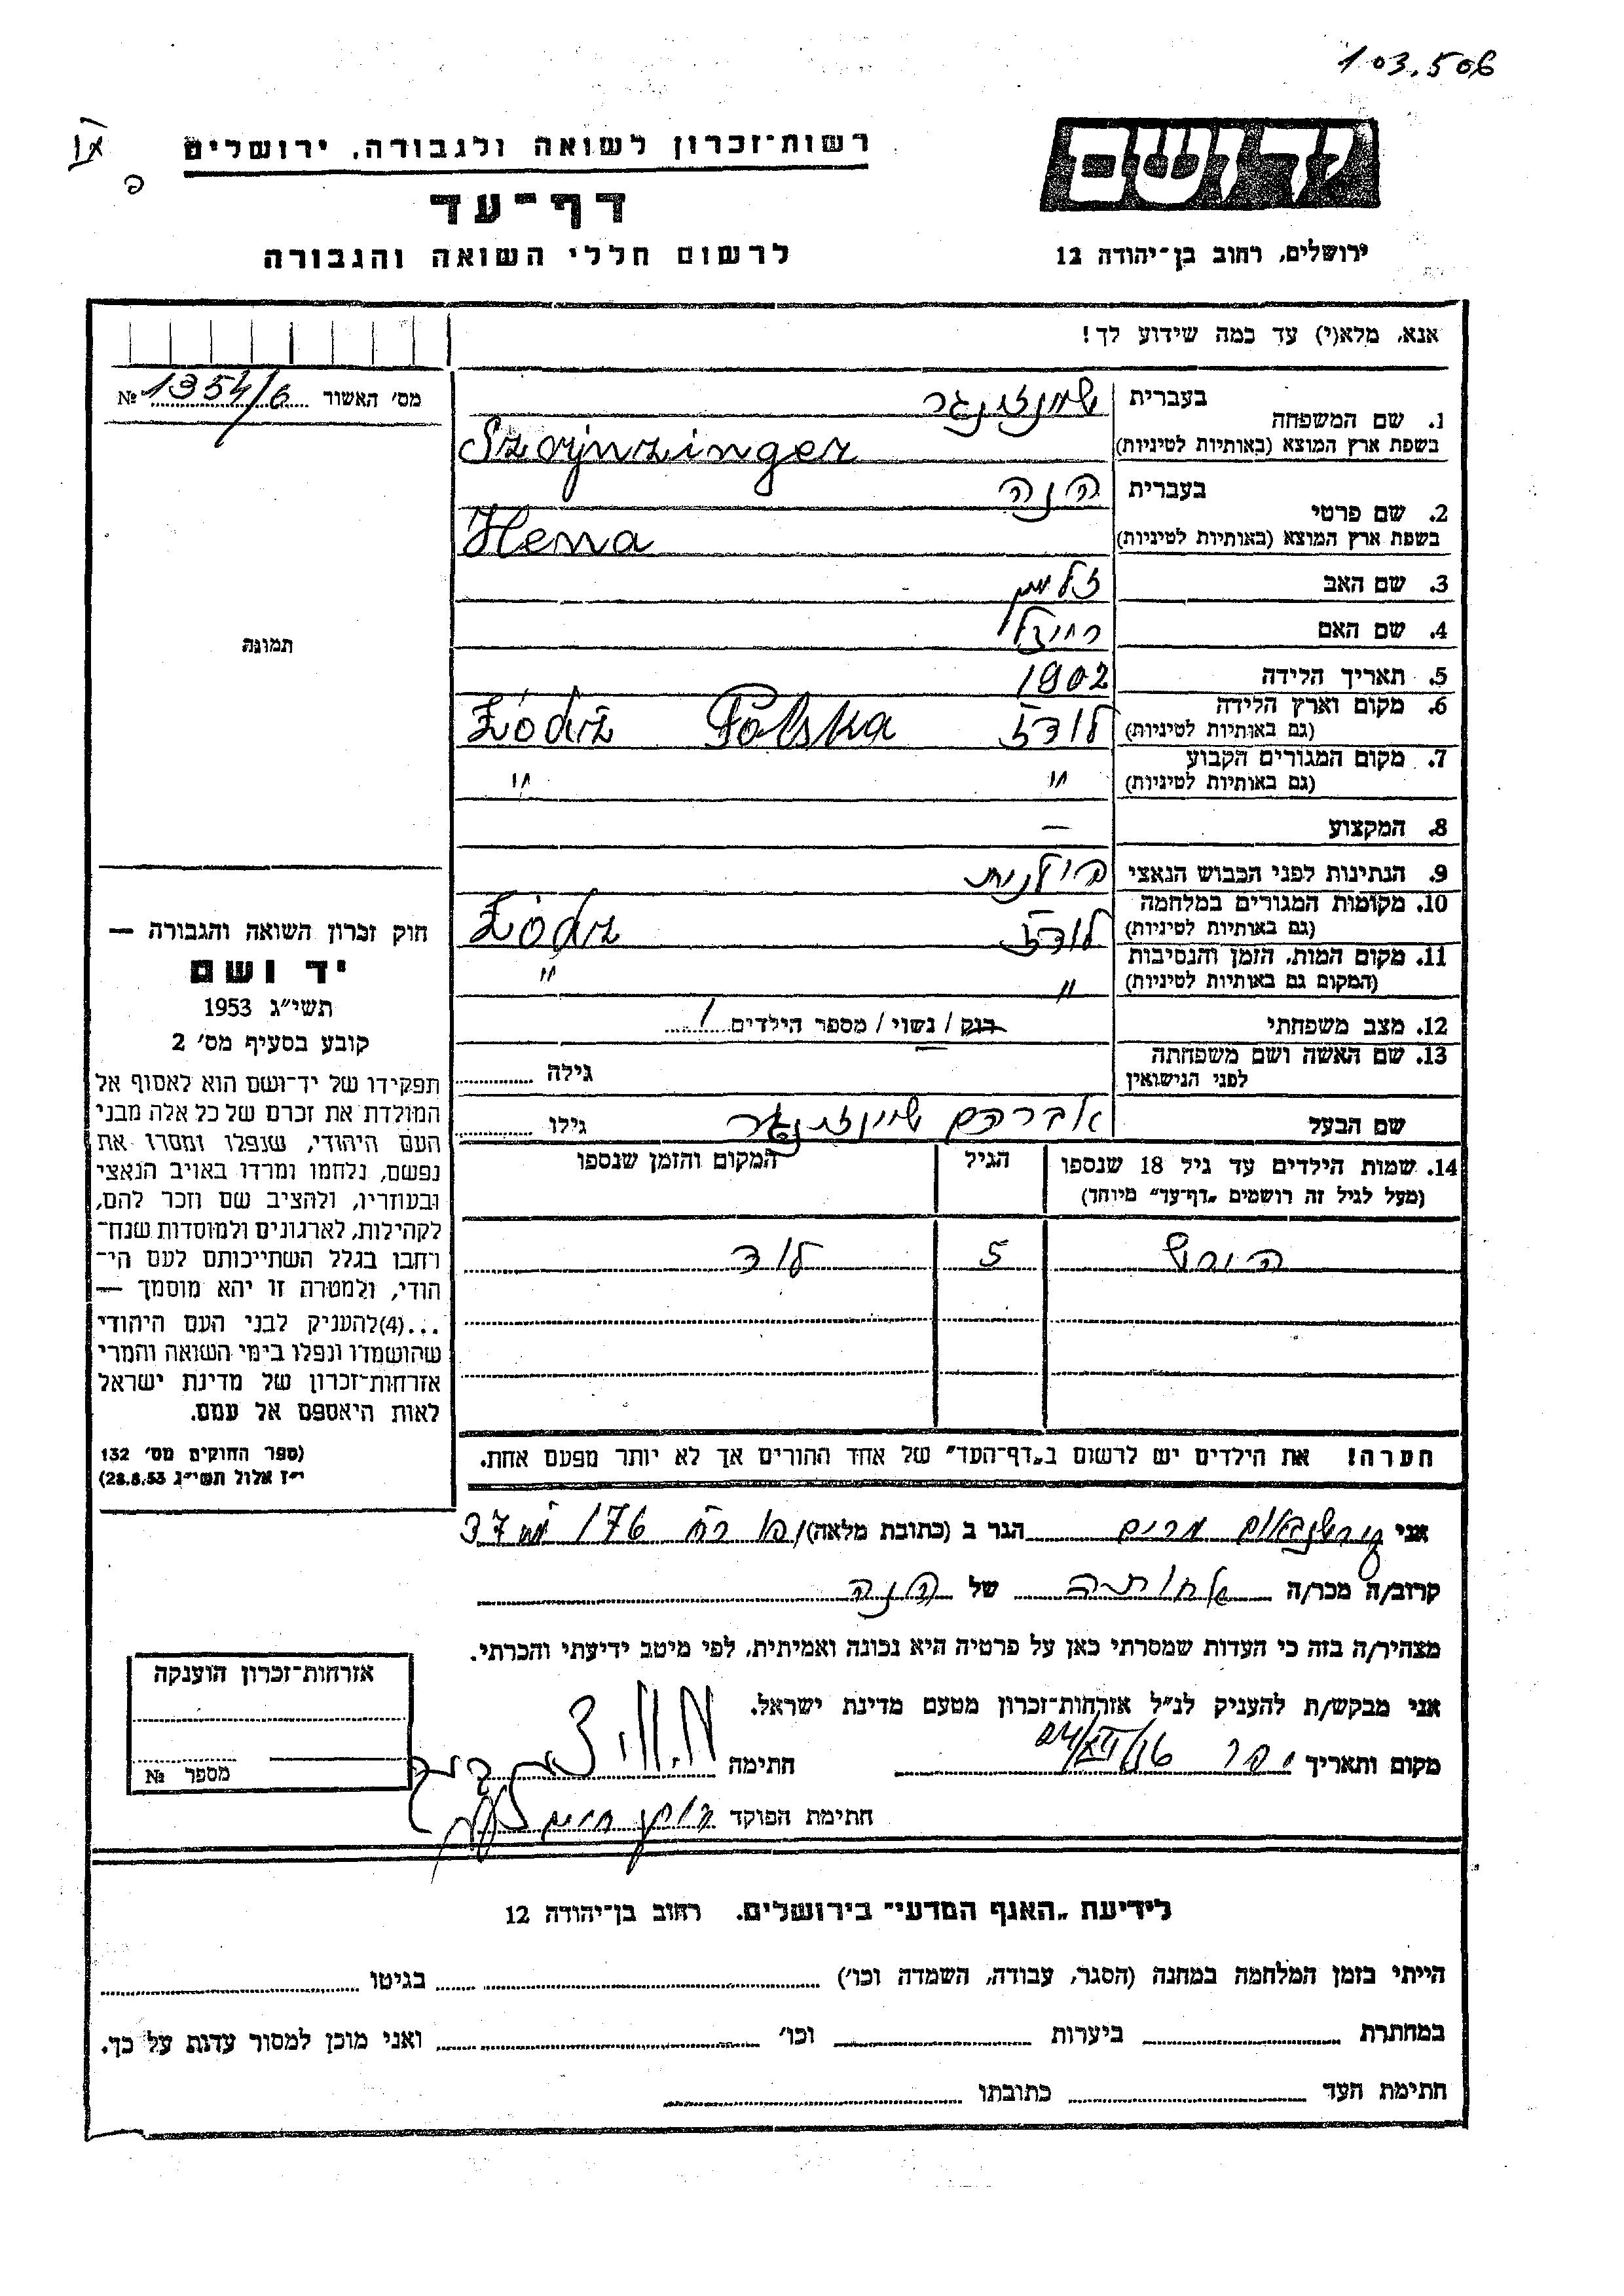 103.506
יד ושם
ירושלים, רחוב בן־יהודה 12
רשות־זכרון לשואה ולגבורה, ירושלים
דף־עד
לרשום חללי השואה והגבורה
אנא, מלא(י) עד כמה שידוע לך!
מס׳ האשור 1354/6 №
1. שם המשפחה
בעברית שיינזינגר
בשפת ארץ המוצא (באותיות לטיניות) Szajnzinger
2. שם פרטי
בעברית הנה
בשפת ארץ המוצא (באותיות לטיניות) Henna
3. שם האב זלמן
4. שם האם רייזל
5. תאריך הלידה 1902
6. מקום וארץ הלידה
(גם באותיות לטיניות) לודז Polska Łódź
7. מקום המגורים הקבוע
(גם באותיות לטיניות) " "
8. המקצוע —
9. הנתינות לפני הכבוש הנאצי פולנית
10. מקומות המגורים במלחמה
(גם באותיות לטיניות) לודז Łódz
11. מקום המות, הזמן והנסיבות
(המקום גם באותיות לטיניות) " "
12. מצב משפחתי רווק / נשוי / מספר הילדים 1
13. שם האשה ושם משפחתה
לפני הנישואין גילה
שם הבעל אברהם שיינזינגר גילו
14. שמות הילדים עד גיל 18 שנספו
(מעל לגיל זה רושמים „דף־עד" מיוחד)
הגיל
המקום והזמן שנספו
הירש 5 לוד
הערה! את הילדים יש לרשום ב„דף־העד" של אחד ההורים אך לא יותר מפעם אחת.
תמונה
חוק זכרון השואה והגבורה —
יד ושם
תשי״ג 1953
קובע בסעיף מס׳ 2
תפקידו של יד־ושם הוא לאסוף אל
המולדת את זכרם של כל אלה מבני
העם היהודי, שנפלו ומסרו את
נפשם, נלחמו ומרדו באויב הנאצי
ובעוזריו, ולהציב שם וזכר להם,
לקהילות, לארגונים ולמוסדות שנח־
רבו בגלל השתייכותם לעם הי־
הודי, ולמטרה זו יהא מוסמך —
...(4)להעניק לבני העם היהודי
שהושמדו ונפלו בימי השואה והמרי
אזרחות־זכרון של מדינת ישראל
לאות היאספם אל עמם.
(ספר החוקים מס׳ 132
י״ז אלול תשי״ג 28.8.53)
אני קירשנבאום מרים הגר ב (כתובת מלאה) 176 37
קרוב/ה מכר/ה אחותה של הנה
מצהיר/ה בזה כי העדות שמסרתי כאן על פרטיה היא נכונה ואמיתית, לפי מיטב ידיעתי והכרתי.
אני מבקש/ת להעניק לנ״ל אזרחות־זכרון מטעם מדינת ישראל.
מקום ותאריך חתימה
חתימת הפוקד
אזרחות־זכרון הוענקה
מספר №
לידיעת „האגף המדעי" בירושלים, רחוב בן־יהודה 12
הייתי בזמן המלחמה במחנה (הסגר, עבודה, השמדה וכו׳) בגיטו
במחתרת ביערות וכו׳ ואני מוכן למסור עדות על כך.
חתימת העד כתובתו